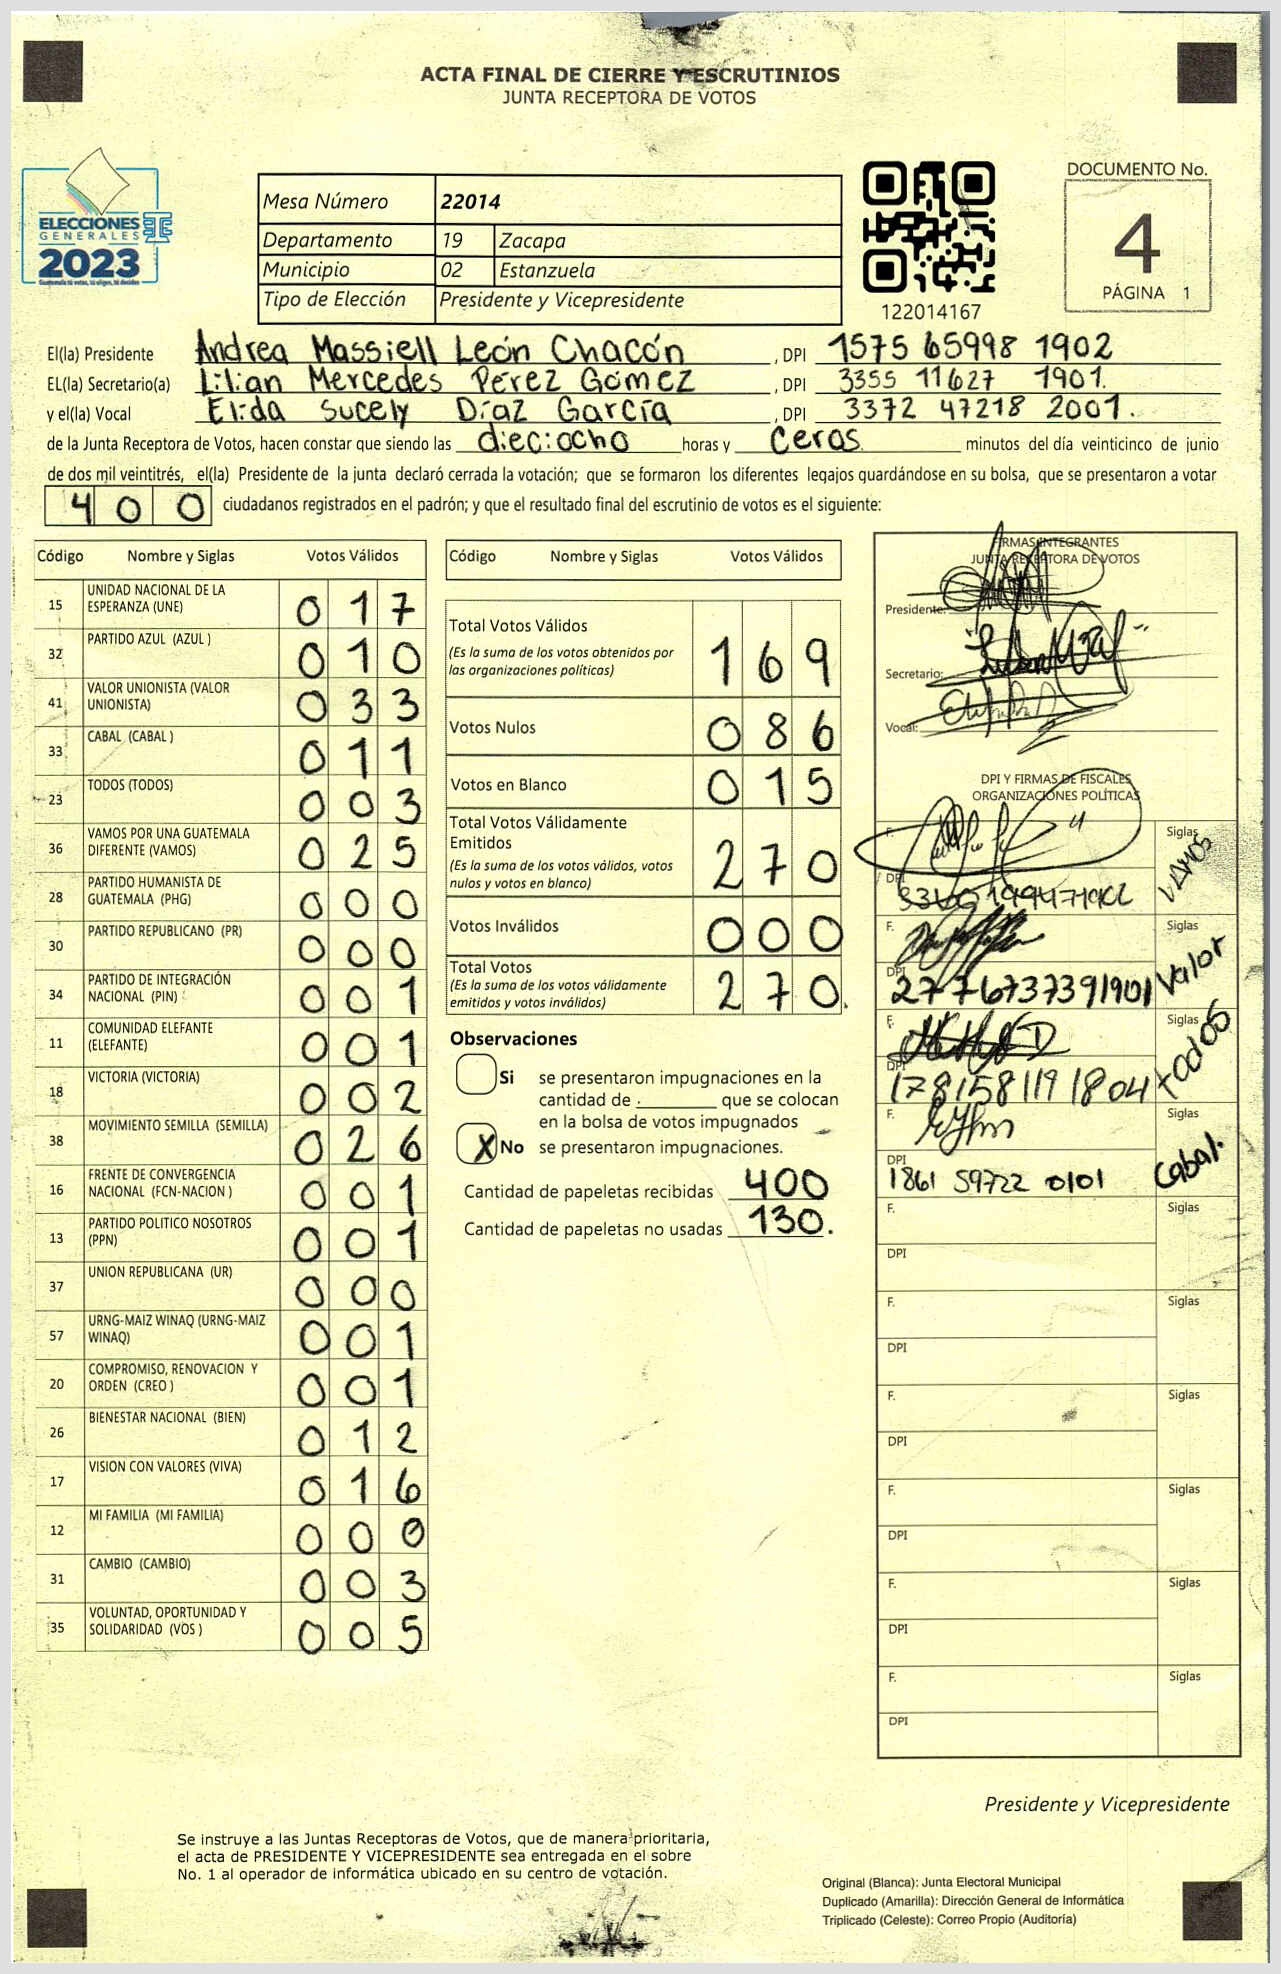 ACTA FINAL DE CIERRE Y ESCRUTINIOS
JUNTA RECEPTORA DE VOTOS
ELECCIONES
GENERALES
2023
Mesa Número 22014
Departamento 19 Zacapa
Municipio 02 Estanzuela
Tipo de Elección Presidente y Vicepresidente
122014167
DOCUMENTO No.
4
PÁGINA 1
El(la) Presidente Andrea Massiell León Chacón, DPI 1575 65998 1902
EL(la) Secretario(a) Lilian Mercedes Pérez Gómez, DPI 3355 11627 1901.
y el(la) Vocal Elida Sucely Díaz García, DPI 3372 47218 2001.
de la Junta Receptora de Votos, hacen constar que siendo las dieciocho horas y Ceros minutos del día veinticinco de junio
de dos mil veintitrés, el(la) Presidente de la junta declaró cerrada la votación; que se formaron los diferentes legajos guardándose en su bolsa, que se presentaron a votar
400 ciudadanos registrados en el padrón; y que el resultado final del escrutinio de votos es el siguiente:
Código Nombre y Siglas Votos Válidos
15 UNIDAD NACIONAL DE LA
ESPERANZA (UNE) 017
32 PARTIDO AZUL (AZUL ) 010
41 VALOR UNIONISTA (VALOR
UNIONISTA) 033
33 CABAL (CABAL ) 011
23 TODOS (TODOS) 003
36 VAMOS POR UNA GUATEMALA
DIFERENTE (VAMOS) 025
28 PARTIDO HUMANISTA DE
GUATEMALA (PHG) 000
30 PARTIDO REPUBLICANO (PR) 000
34 PARTIDO DE INTEGRACIÓN
NACIONAL (PIN) 001
11 COMUNIDAD ELEFANTE
(ELEFANTE) 001
18 VICTORIA (VICTORIA) 002
38 MOVIMIENTO SEMILLA (SEMILLA) 026
16 FRENTE DE CONVERGENCIA
NACIONAL (FCN-NACION ) 001
13 PARTIDO POLITICO NOSOTROS
(PPN) 001
37 UNION REPUBLICANA (UR) 000
57 URNG-MAIZ WINAQ (URNG-MAIZ
WINAQ) 001
20 COMPROMISO, RENOVACION Y
ORDEN (CREO ) 001
26 BIENESTAR NACIONAL (BIEN) 012
17 VISION CON VALORES (VIVA) 016
12 MI FAMILIA (MI FAMILIA) 000
31 CAMBIO (CAMBIO) 003
35 VOLUNTAD, OPORTUNIDAD Y
SOLIDARIDAD (VOS ) 005
Código Nombre y Siglas Votos Válidos
Total Votos Válidos
(Es la suma de los votos obtenidos por
las organizaciones políticas) 169
Votos Nulos 086
Votos en Blanco 015
Total Votos Válidamente
Emitidos
(Es la suma de los votos válidos, votos
nulos y votos en blanco) 270
Votos Inválidos 000
Total Votos
(Es la suma de los votos válidamente
emitidos y votos inválidos) 270.
Observaciones
Si se presentaron impugnaciones en la
cantidad de ________ que se colocan
en la bolsa de votos impugnados
X No se presentaron impugnaciones.
Cantidad de papeletas recibidas 400
Cantidad de papeletas no usadas 130.
FIRMAS INTEGRANTES
JUNTA RECEPTORA DE VOTOS
Presidente:
Secretario:
Vocal:
DPI Y FIRMAS DE FISCALES
ORGANIZACIONES POLÍTICAS
F. Siglas VAMOS
DPI
F. Siglas Valor
DPI 2776737391901
F. Siglas todos
DPI 1781581191804
F. Siglas Cabal.
DPI 1861 59722 0101
F. Siglas
DPI
F. Siglas
DPI
F. Siglas
DPI
F. Siglas
DPI
F. Siglas
DPI
F. Siglas
DPI
Presidente y Vicepresidente
Se instruye a las Juntas Receptoras de Votos, que de manera prioritaria,
el acta de PRESIDENTE Y VICEPRESIDENTE sea entregada en el sobre
No. 1 al operador de informática ubicado en su centro de votación.
Original (Blanca): Junta Electoral Municipal
Duplicado (Amarilla): Dirección General de Informática
Triplicado (Celeste): Correo Propio (Auditoría)